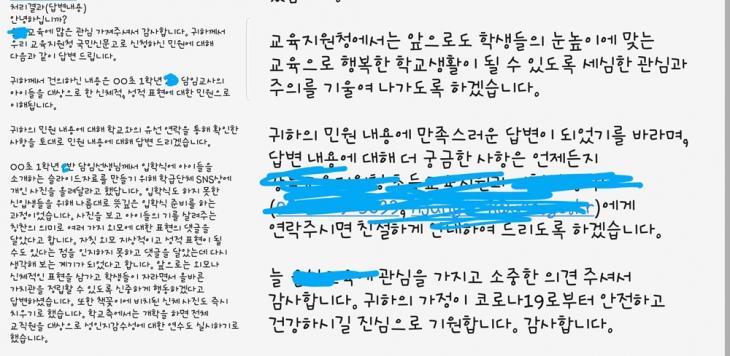 처리결과(답변내용)
안녕하십니까?
교육에 많은 관심 가져주셔 감사합니다. 귀하께서
우리 교육지원청 국민신문고로 신청하신 민원에 대해
다음과 같이 답변 드립니다.
귀하께서 건의하신 내용은 OO초 1학년 담임교사의
아이들을 대상으로 한 신체적, 성적 표현에 대한 민원으로
이해됩니다.
귀하의 민원 내용에 대해 학교와의 유선 연락을 통해 확인한
사항을 토대로 민원 내용에 대해 답변 드리겠습니다.
OO초 1학년 반 담임선생님께서 입학식에 아이들을
소개하는 슬라이드자료를 만들기 위해 학급단체 SNS상에
개인 사진을 올려달라고 했답니다. 입학식도 하지 못한
신입생들을 위해 나름대로 뜻깊은 입학식 준비를 하는
과정이었습니다. 사진을 보고 아이들의 기를 살려주는
칭찬의 의미로 여러 가지 외모에 대한 표현의 댓글을
달았다고 합니다. 자칫 외모 지상적이고 성적 표현이 될
수도 있다는 점을 인지하지 못하고 댓글을 달았는데 다시
생각해 보는 계기가 되었다고 합니다. 앞으로는 외모나
신체적인 표현을 삼가고 학생들이 자라면서 올바른
가치관을 정립할 수 있도록 신중하게 행동하겠다고
답변하셨습니다. 또한 책꽂이에 비치된 신체사진도 즉시
치우기로 했습니다. 학교측에서는 개학을 하면 전체
교직원을 대상으로 성인지감수성에 대한 연수도 실시하기로
했습니다.
교육지원청에서는 앞으로도 학생들의 눈높이에 맞는
교육으로 행복한 학교생활이 될 수 있도록 세심한 관심과
주의를 기울여 나가도록 하겠습니다.
귀하의 민원 내용에 만족스러운 답변이 되었기를 바라며,
답변 내용에 대해 더 궁금한 사항은 언제든지
)에게
연락주시면 친절하게 안내하여 드리도록 하겠습니다.
늘 관심을 가지고 소중한 의견 주셔서
감사합니다. 귀하의 가정이 코로나19로부터 안전하고
건강하시길 진심으로 기원합니다. 감사합니다.